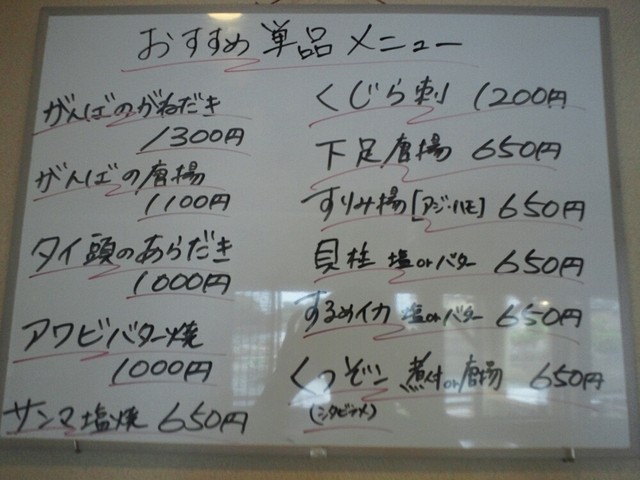 おすすめ単品メニュー
がんばのがねだき
1300円
がんばの唐揚
1100円
タイ頭のあらだき
1000円
アワビバター焼
1000円
サンマ塩焼 650円
くじら刺 1200円
下足唐揚 650円
すりみ揚[アジ・ハモ] 650円
貝柱 塩orバター 650円
するめイカ 塩orバター 650円
くつぞこ 煮付or唐揚 650円
(シタビラメ)